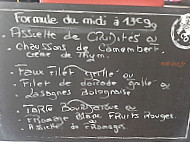 Formule du midi à 13€90
Assiette de Crudités ou
Chaussons de Camembert.
Crème de Thym.
Faux Filet Grillé ou
Filet de dorade Grillé ou
Lasagnes Bolognaise
Tarte Bourdaloue ou
Fromage Blanc Fruits Rouges.
Assiette de Fromages